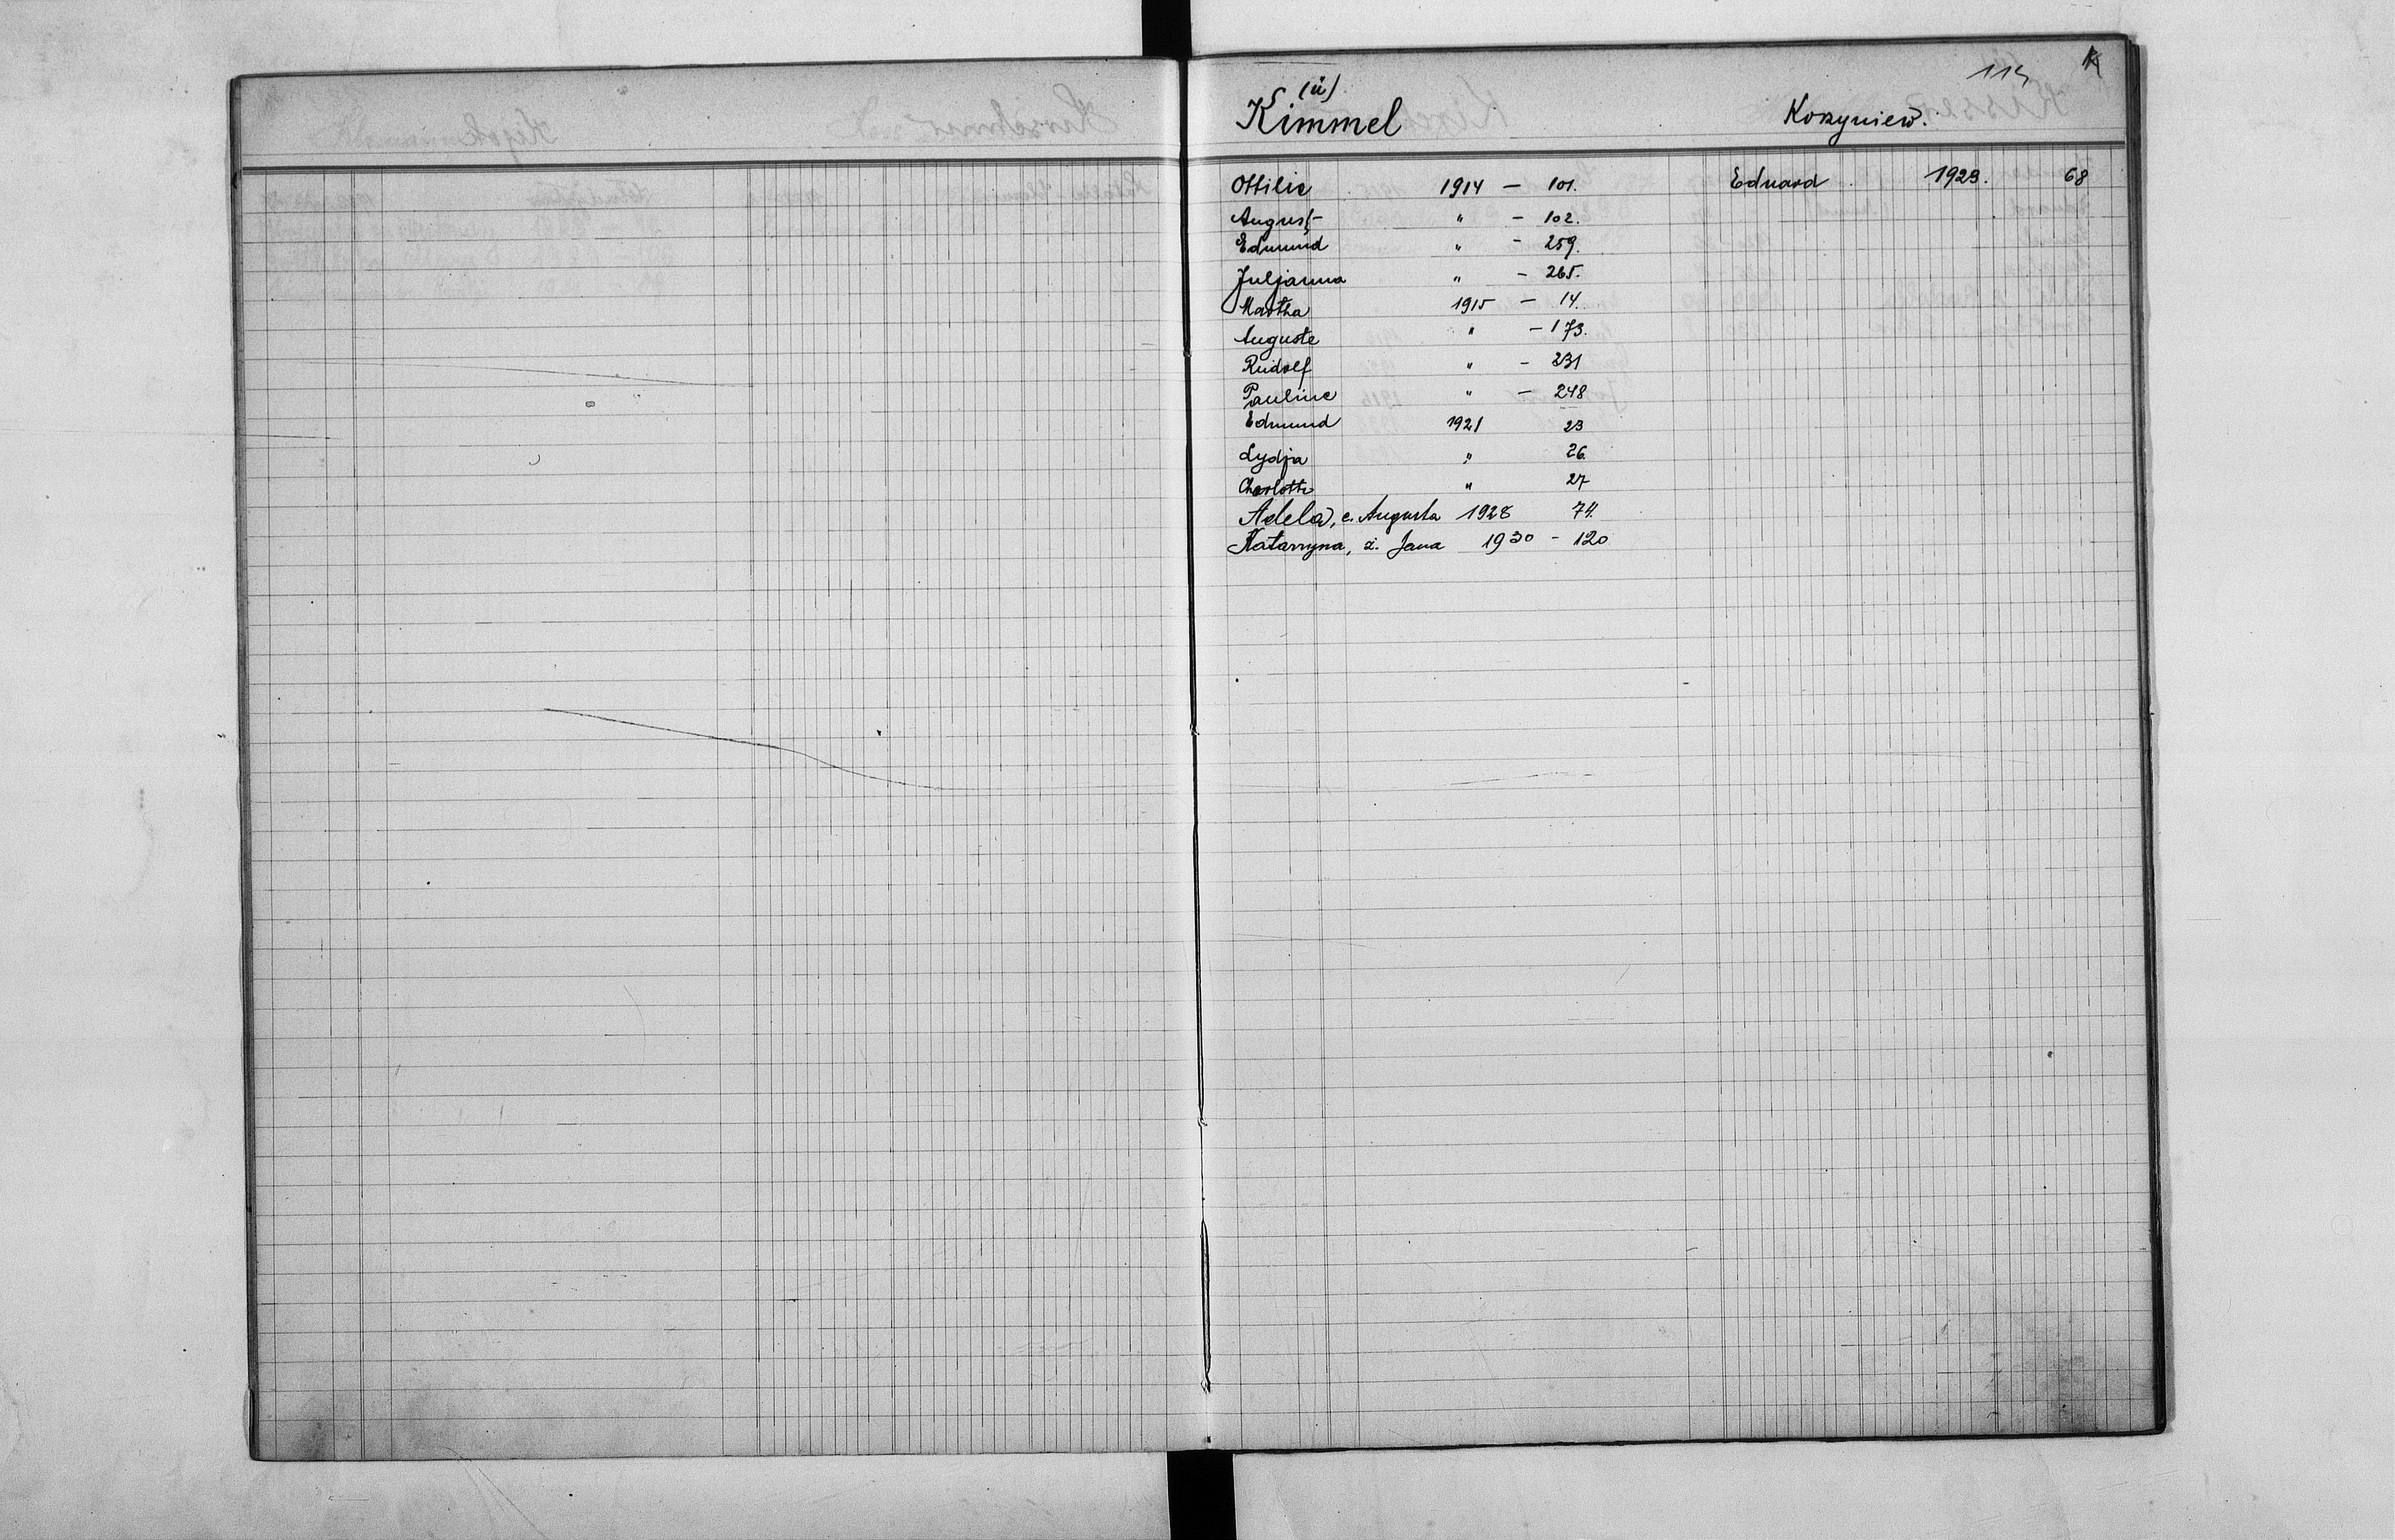 114 K
(ü)
Kimmel
Ottilie 1914 — 101.
August " — 102.
Edmund " — 259.
Juljanna " — 265.
Martha 1915 — 14.
Auguste " — 173.
Rudolf " — 231
Pauline " — 248
Edmund 1921 23
Lydja " 26
Charlotte " 27
Adela, c. Augusta 1928 74.
Katarzyna, ż. Jana 1930 - 120
Eduard 1923. 68